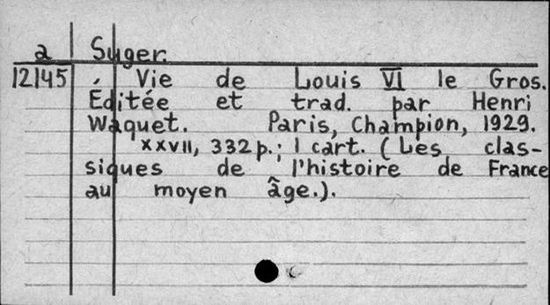 a Suger.
12145 Vie de Louis VI le Gros.
Éditée et trad. par Henri
Waquet. Paris, Champion, 1929.
XXVII, 332 p.; 1 cart. (Les clas-
siques de l'histoire de France
au moyen âge.).